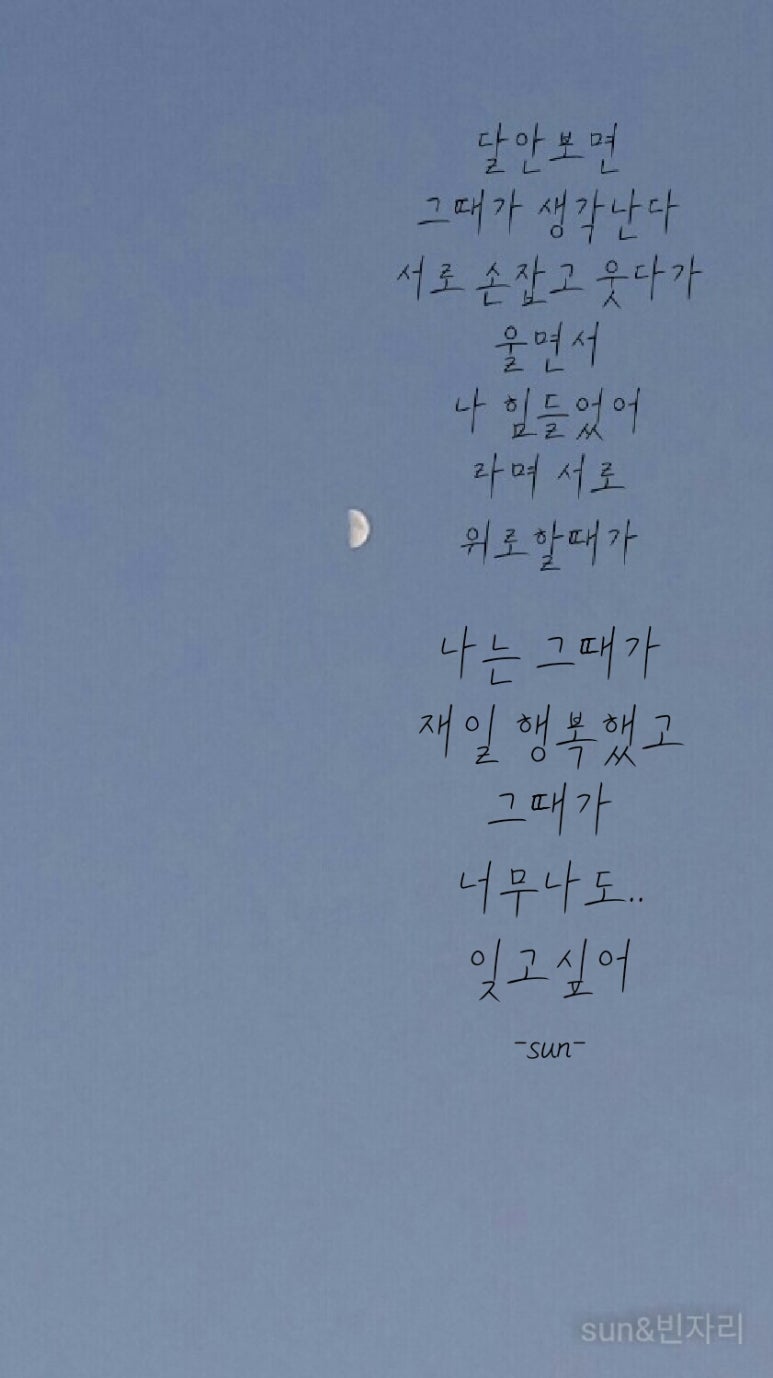 달안보면
그때가 생각난다
서로 손잡고 웃다가
울면서
나 힘들었어
라며 서로
위로할때가
나는 그때가
재일 행복했고
그때가
너무나도..
잊고싶어
-sun-
sun&빈자리